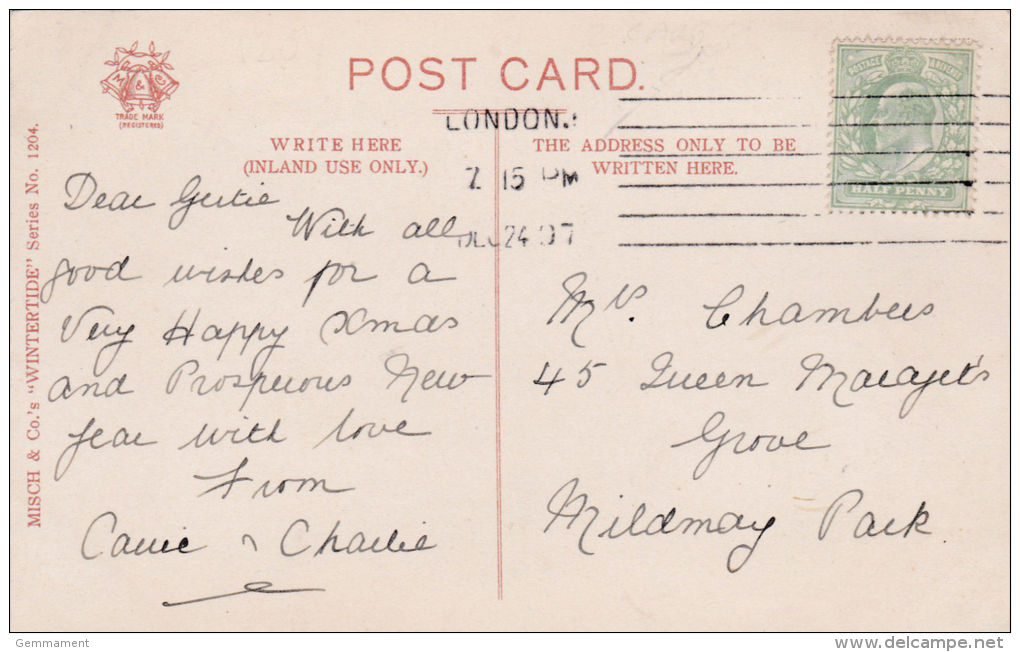 POST CARD.
M & Co
TRADE MARK
(REGISTERED)
MISCH & Co.'s "WINTERTIDE" Series No. 1204.
WRITE HERE
(INLAND USE ONLY.)
THE ADDRESS ONLY TO BE
WRITTEN HERE.
LONDON.
7 15 PM
DEC 24 07
POSTAGE & REVENUE
HALF PENNY
Dear Gertie
With all
good wishes for a
Very Happy Xmas
and Prosperous New
Year with love
From
Carrie & Charlie
Mrs. Chambers
45 Queen Margaret's
Grove
Mildmay Park
Gemmament
www.delcampe.net